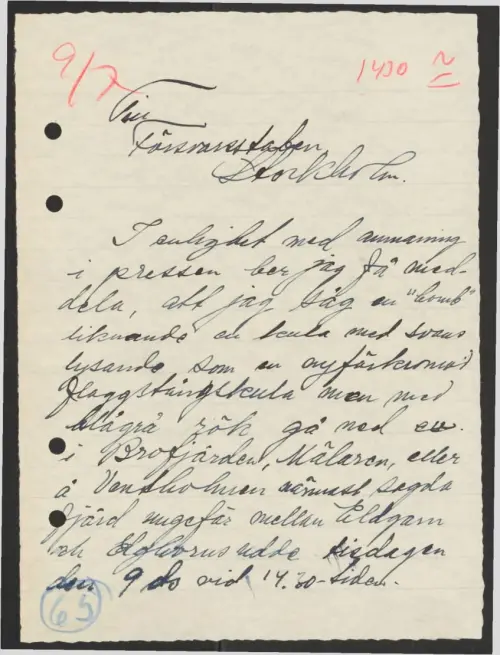 9/7
1430
Till
Försvarsstaben
Stockholm.
I enlighet med anmaning
i pressen ber jag få med-
dela, att jag såg en "bomb"
liknande en kula med svans
lysande som en nyförkromad
flaggstångskula men med
blågrå rök gå ned
i Brofjärden, Mälaren, eller
å Ventholmen närmast sagda
fjärd ungefär mellan Eldgarn
och udde tisdagen
den 9 ds vid 14.30-tiden.
65